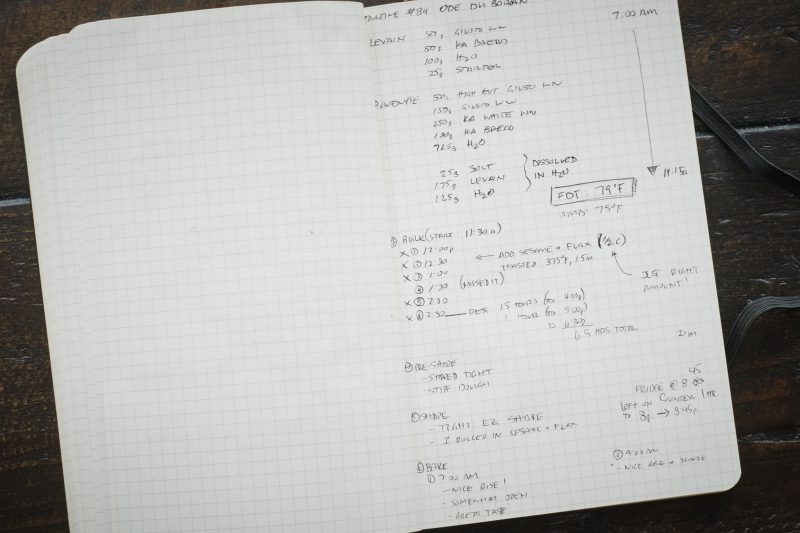 #84 ODE DU BOHAN
7:00 AM
LEVAIN 50g GIUSTO WW
50g KA BREAD
100g H2O
25g STARTER
50g HIGH EXT GIUSTO WW
150g GIUSTO WW
250g KA WHITE WW
KA BREAD
725g H2O
25g SALT
175g LEVAIN
125g H2O
DISSOLVED
IN H2O
11:15a
FDT: 79°F
AMB: 75°F
BULK (START: 11:30a)
X ① 12:00p
X ② 12:30
X ③ 1:00
④ 1:30 (MISSED IT)
X ⑤ 2:00
X ⑥ 2:30
← ADD SESAME + FLAX (1/2 C)
TOASTED 375°F, 15M
JUST RIGHT
AMOUNT!
1.5 HOURS (TO 4:00p)
1 HOUR (TO 5:00p)
6.5 HRS TOTAL
20m
PRE SHAPE
- SHAPED TIGHT
- STIFF DOUGH
SHAPE
- TIGHT EZ SHAPE
- 1 ROLLED IN SESAME + FLAX
45
FRIDGE @ 8
LEFT ON COUNTER 1 HR
TO 8p → 8:45p
BAKE
① 7:00 AM
- NICE RISE!
- SOMEWHAT OPEN
- GREAT TASTE
② 9:00 AM
- NICE RISE +